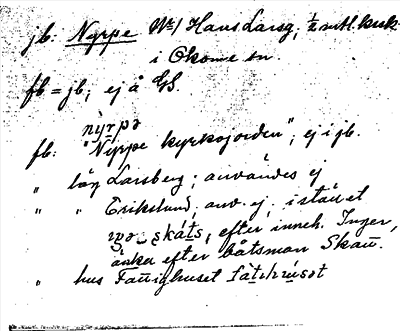 jb. Nyppe № 1 Hans Larsg, ½ mtl. krsk
i Ökome sn.
fb = jb; ej å GS.
nỳrpə
fb. "Nyppe kyrkojorden", ej i jb.
" läg Larsberg; användes ej
" " Erikslund, anv. ej, i stället
skáts, efter inneh. Inger,
änka efter båtsman Skau.
" hus Fattighuset fátihúsət